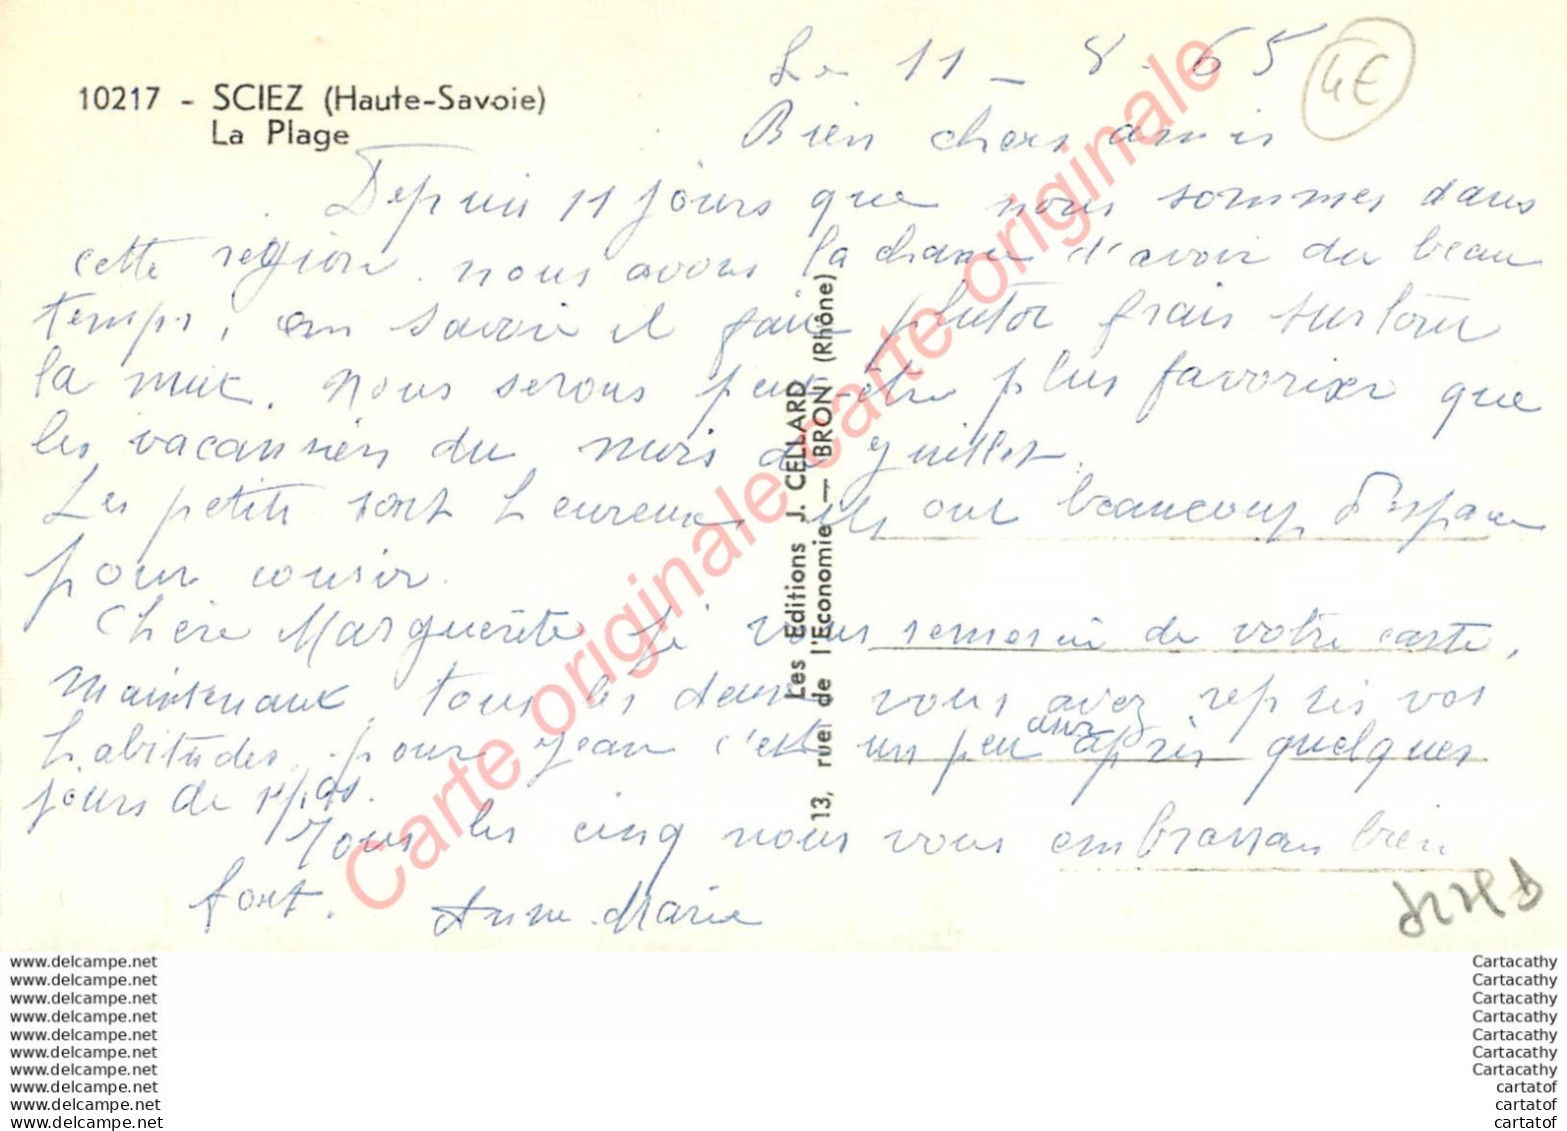 10217 - SCIEZ (Haute-Savoie)
La Plage
Le 11 - 8 - 65
4€
Bien chers amis
Depuis 11 jours que nous sommes dans
cette région, nous avons la chance d'avoir du beau
temps, en Savoie il fait plutot frais surtout
la nuit. Nous serons peut-être plus favorisés que
les vacanciers du mois de Juillet.
Les petits sont heureux, ils ont beaucoup d'espace
pour courir.
Chère Marguerite Je vous remercie de votre carte,
maintenant, tous les deux vous avez repris vos
habitudes, pour Jean c'est un peu dur après quelques
jours de repos.
Tous les cinq nous vous embrassons bien
fort. Anne-Marie
Les Editions J. CELLARD
13, rue de l'Economie — BRON (Rhône)
Carte originale carte originale
www.delcampe.net
www.delcampe.net
www.delcampe.net
www.delcampe.net
www.delcampe.net
www.delcampe.net
www.delcampe.net
www.delcampe.net
www.delcampe.net
www.delcampe.net
Cartacathy
Cartacathy
Cartacathy
Cartacathy
Cartacathy
Cartacathy
Cartacathy
cartatof
cartatof
cartatof